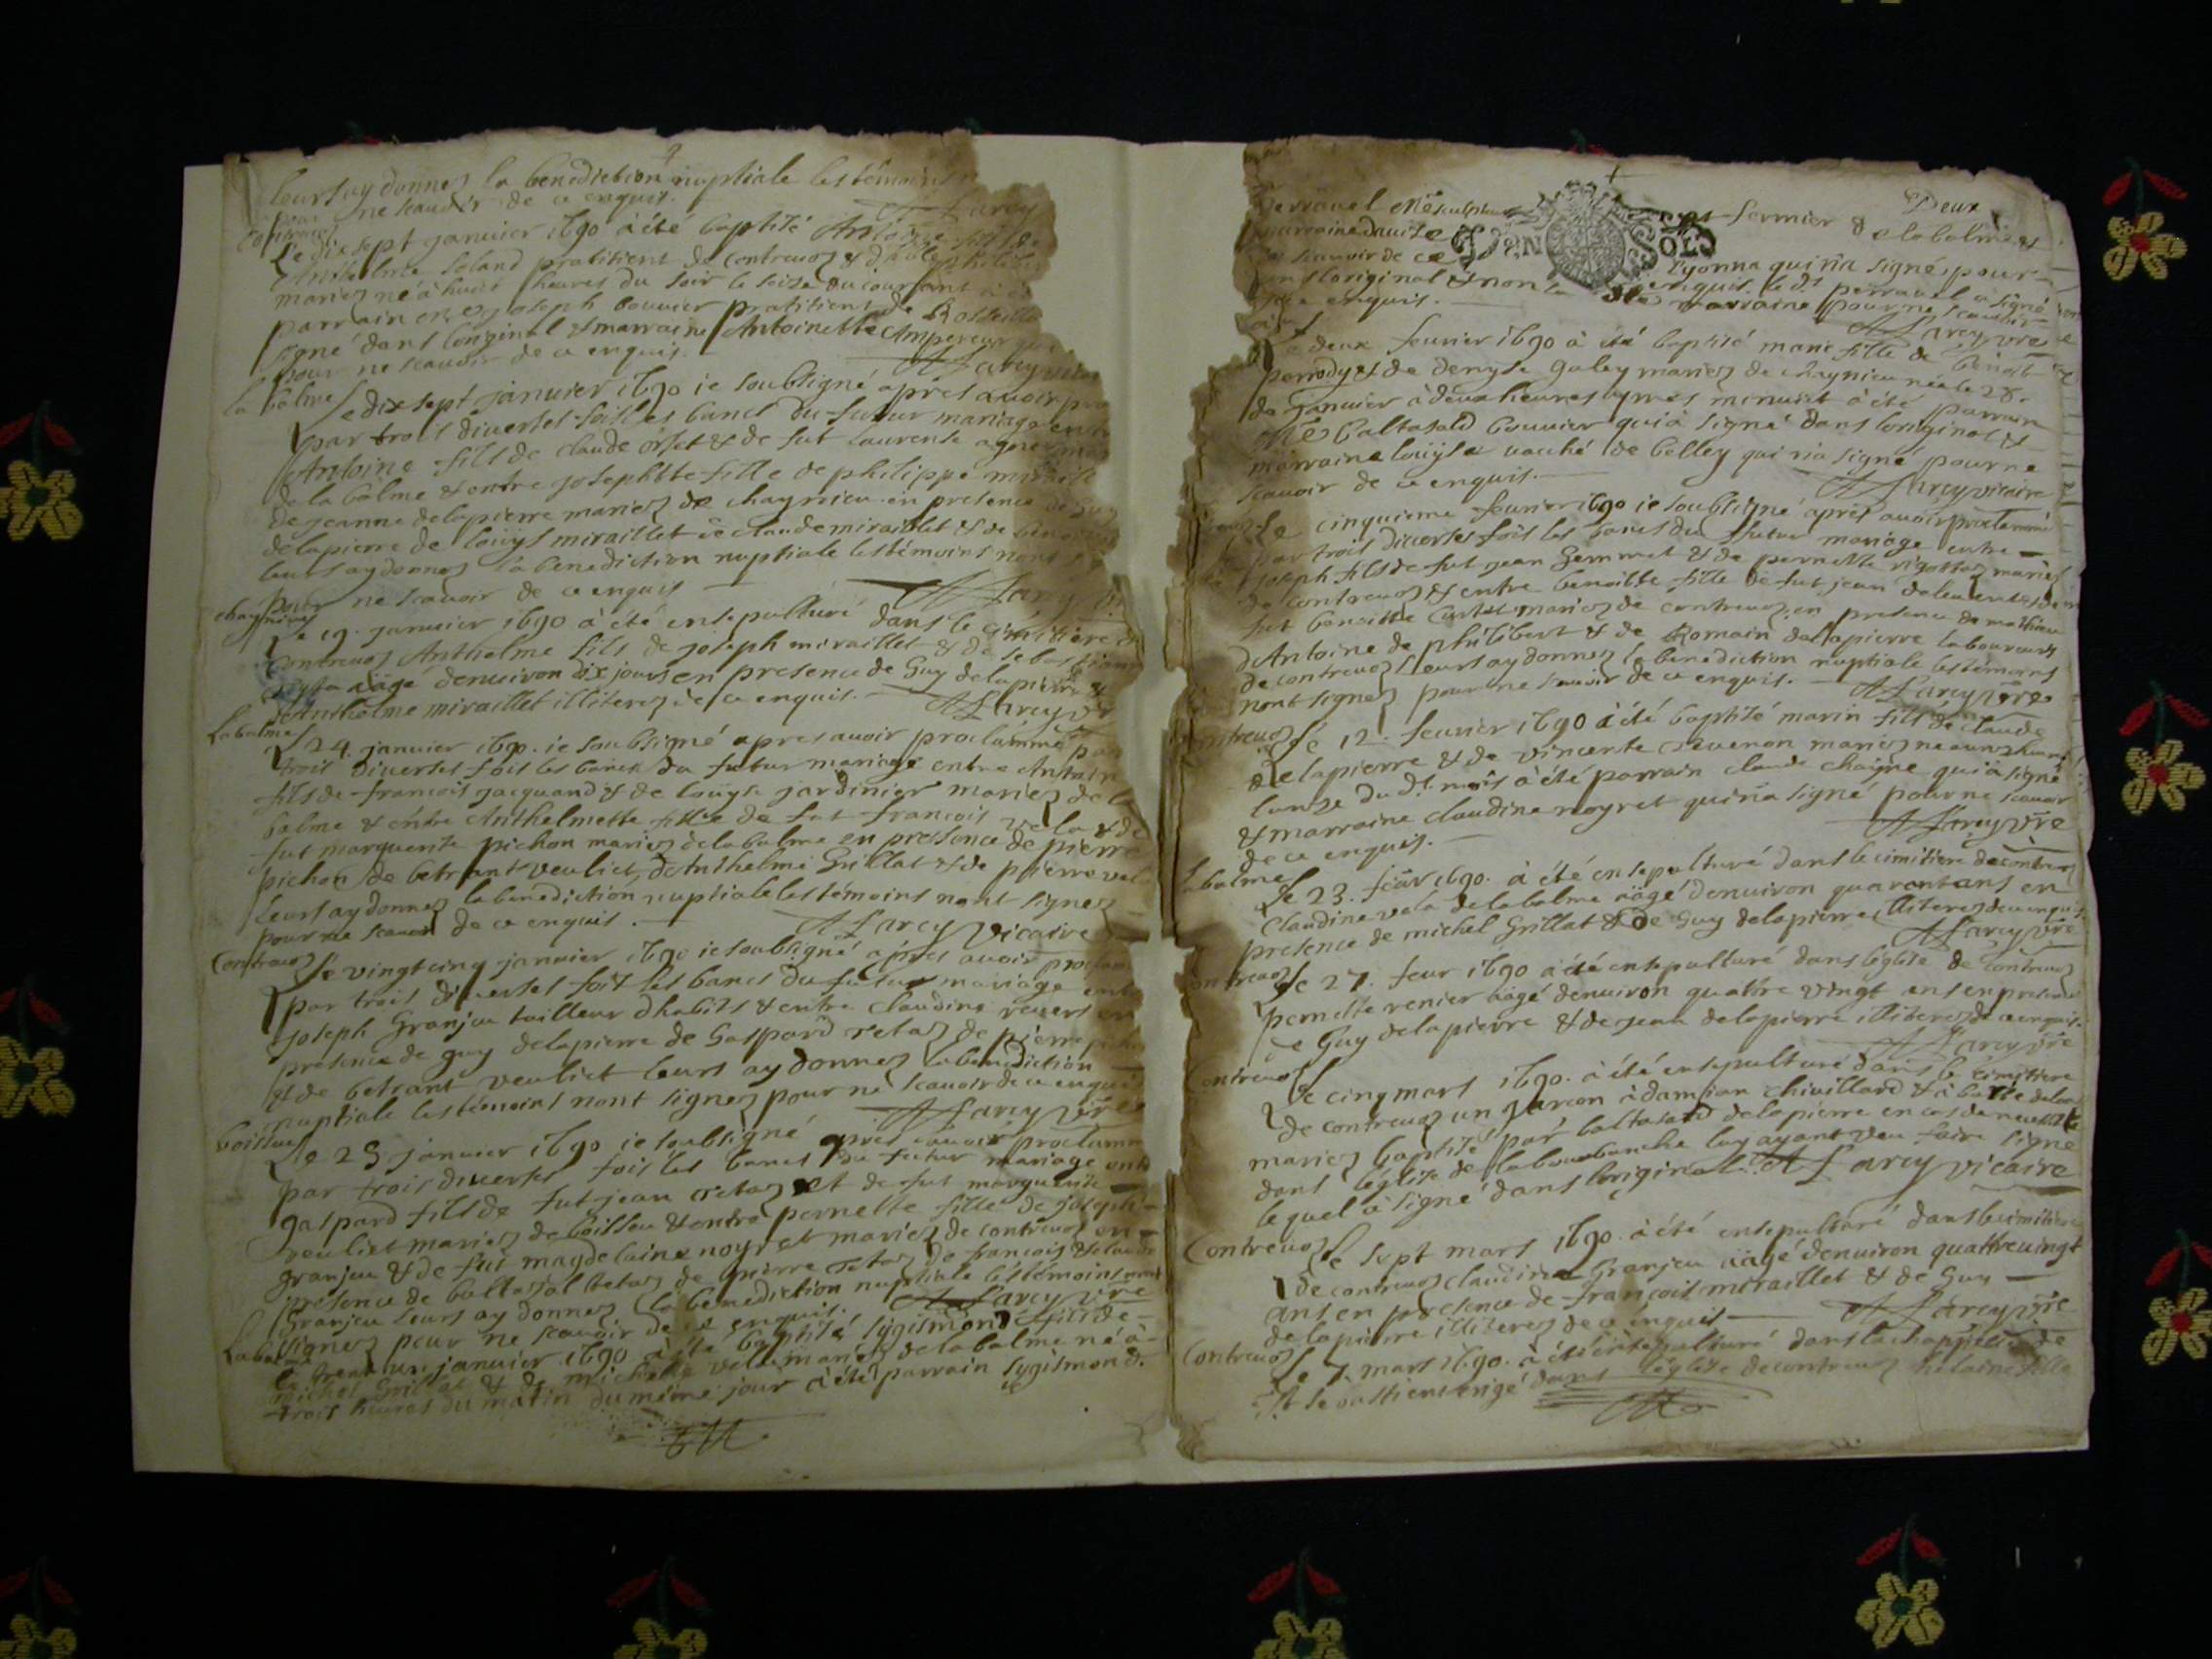 leurs ay donnez la benediction nuptiale les témoins
pour ne scauoir de ce enquis.
A Larcy
Contreuoz
Le dix sept januier 1690 à été baptisé Antoine fils de
Anthelme Soland pratitient de Contreuoz & de
mariez né à huict heures du soir le seize du courant à été
parrain Joseph bouuier pratitient de Rosseillo
signé dans loriginal & marraine Antoinette Ampereur
pour ne scauoir de ce enquis.
A Larcy
la balme
Le dix sept januier 1690 ie soubsigné après auoir pro
par trois diuerses fois les bancs du futur mariage entre
Antoine fils de claude orset & de fut laurense
de la balme & entre josephtte fille de philippe mirail
de jeanne delapierre mariez de chaynieu en presence de Guy
delapierre de louys miraillet de claude miraillet & de
leurs ay donnez la benediction nuptiale les témoins nont
pour ne scauoir de ce enquis
A Larcy
chaynieu
Le 19. januier 1690 à été ensepulturé dans le cimitiere de
Contreuoz Anthelme fils de joseph miraillet & de sebastiane
âagé denuiron dix jours en presence de Guy delapierre &
Anthelme miraillet illiterez de ce enquis.
A Larcy
Labalme
24. januier 1690. ie soubsigné apres auoir proclammé par
trois diuerses fois les bancs du futur mariage entre Antoin
fils de francois jacquand & de louyse jardinier mariez de la
balme & entre Anthelmette fille de fut francois vela & de
fut marguerite pichon mariez de labalme en presence de pierre
pichon de betrant veuliet, dAnthelme Grillat & de pierre vela
Leurs ay donnez la benediction nuptiale les témoins nont signez
pour ne scauoir de ce enquis.
A Larcy vicaire
Contreuoz
Le vingtcinq januier 1690 ie soubsigné apres auoir proclam
par trois diuerses fois les bancs du futur mariage entre
joseph Granjeu tailleur dhabits & entre claudine reuers en
presence de guy delapierre de Gaspard retaz de pierre
& de betrant veuliet leurs ay donnez la benediction
nuptiale les témoins nont signez pour ne scauoir de ce enquis
A Larcy vre
boissieu
Le 25 januier 1690 ie soubsigné apres auoir proclamm
par trois diuerses fois les bancs du futur mariage entre
gaspard fils de fut jean retaz et de fut marguerite
veuliet mariez de boissieu & entre pernette fille de joseph
granjeu & de fut magdelaine noyret mariez de contreuoz en
presence de baltasal retaz de pierre retaz de francois & claude
Granjeu leurs ay donnez la benediction nuptiale les témoins nont
signez pour ne scauoir de ce enquis.
A Larcy vre
Labalme
Le trente un januier 1690 à été baptisé sygismond fils de
michel Grillat & de michelle vella mariez de labalme né à
trois heures du matin du même jour à été parrain sygismond.
Deux
perrauel Me sculpteur
fermier de labalme &
marraine
DEUX SOLS
lyonna qui na signé pour
scauoir de ce enquis. le dt perrauel a signé
dans loriginal & non la dte marraine pour ne scauoir
de ce enquis.
A Larcy vre
Le deux feurier 1690 à été baptisé marie fille de benoit
perrody & de denyse galey mariez de chaynieu née le 28.
de januier à deux heures apres menuict à été parrain
Me baltasard bouuier qui à signé dans loriginal &
marraine louyse vaché de belley qui na signé pour ne
scauoir de ce enquis.
A Larcy vicaire
Le cinquieme feurier 1690 ie soubsigné après auoir proclammé
par trois diuerses fois les bancs du futur mariage entre
joseph fils de fut jean Gemmet & de pernette rigottaz mariez
de contreuoz & entre benoitte fille de fut jean
fut benoitte mariez de contreuoz en presence de mathieu
dAntoine de philibert & de Romain delapierre laboureurs
de contreuoz leurs ay donnez la benediction nuptiale les témoins
nont signez pour ne scauoir de ce enquis.
A Larcy vre
Contreuoz
Le 12. feurier 1690 à été baptisé marin fils de claude
delapierre & de vincente mariez né
lunze du dt mois à été parrain claude chaigne qui à signé
& marraine claudine noyret qui na signé pour ne scauoir
de ce enquis.
A Larcy vre
Labalme
Le 23. feur 1690. à été ensepulturé dans le cimitiere de contreuoz
Claudine vela de labalme âagé denuiron quarantans en
presence de michel Grillat & de Guy delapierre illiterez de ce enquis.
A Larcy vre
Contreuoz
Le 27. feur 1690 à été ensepulturé dans léglise de Contreuoz
pernette renier âagé denuiron quattre vingt ans en presence
de Guy delapierre & de jean delapierre illiterez de ce enquis.
A Larcy vre
Contreuoz
Le cinq mars 1690. à été ensepulturé dans le cimittere
de contreuoz un garcon à damian chiuillard & à
mariez baptisé par baltasard delapierre en cas de necessité
dans léglise de labourbanche luy ayant veu faire signe
lequel à signé dans loriginal.
A Larcy vicaire
Contreuoz
Le sept mars 1690. à été ensepulturé dans le cimitiere
de contreuoz claudine Granjeu âagé denuiron quattreuingt
ans en presence de francois miraillet & de Guy
delapierre illiterez de ce enquis
A Larcy vre
Contreuoz
Le 7. mars 1690. à été ensepulturé dans la chappelle de
St sebastien erigé dans léglise de contreuoz helaine fille